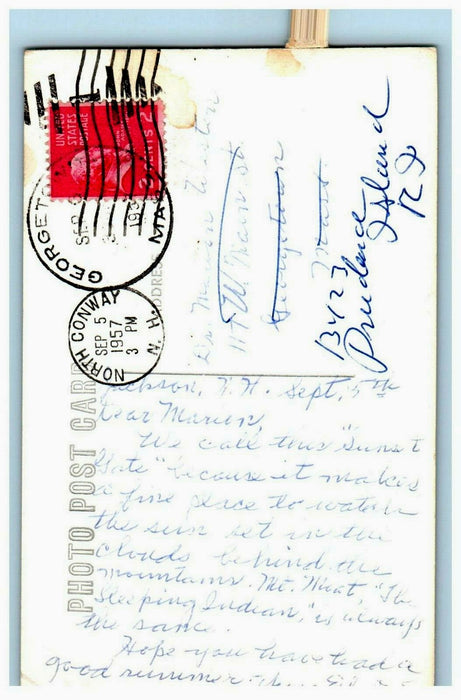 UNITED
STATES
POSTAGE
2 CENTS 2
GEORGETOWN
SEP
MASS
ADDRESS
NORTH CONWAY
SEP 5
1957
3 PM
N. H.
Marion
117 W. Main St.
Georgetown
Mass.
Box 123
Prudence
Island
R I
PHOTO POST CARD
Jackson, N.H. Sept. 5th
Dear Marion,
We call this "Sunset
Gate" because it makes
a fine place to watch
the sun set in the
clouds behind the
mountains. Mt. "The
Sleeping Indian," is always
the same.
Hope you have had a
good summer